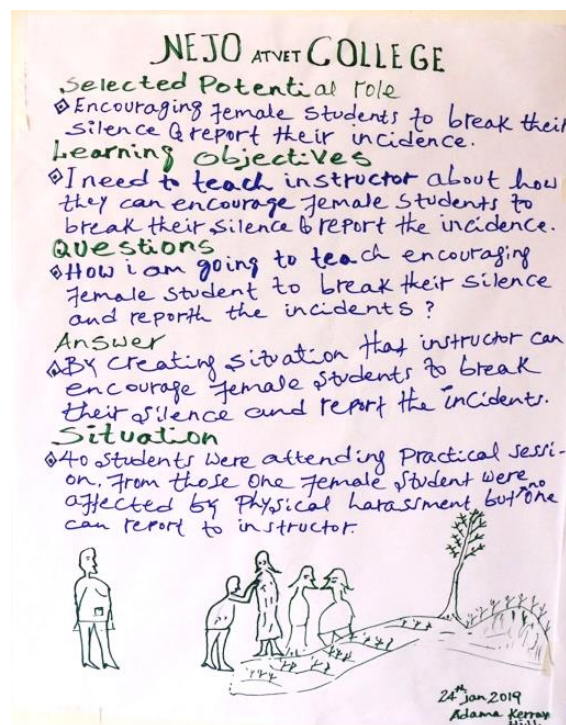 NEJO ATVET COLLEGE
Selected Potential role
Encouraging female students to break their
silence & report their incidence.
Learning Objectives
I need to teach instructor about how
they can encourage female students to
break their silence & report the incidence.
Questions
How i am going to teach encouraging
female student to break their silence
and reporth the incidents?
Answer
By creating situation that instructor can
encourage female students to break
their silence and report the incidents.
Situation
40 students were attending Practical sessi-
on, from those one female student were
affected by Physical harassment but no one
can report to instructor.
24th Jan 2019
Adama Kerray